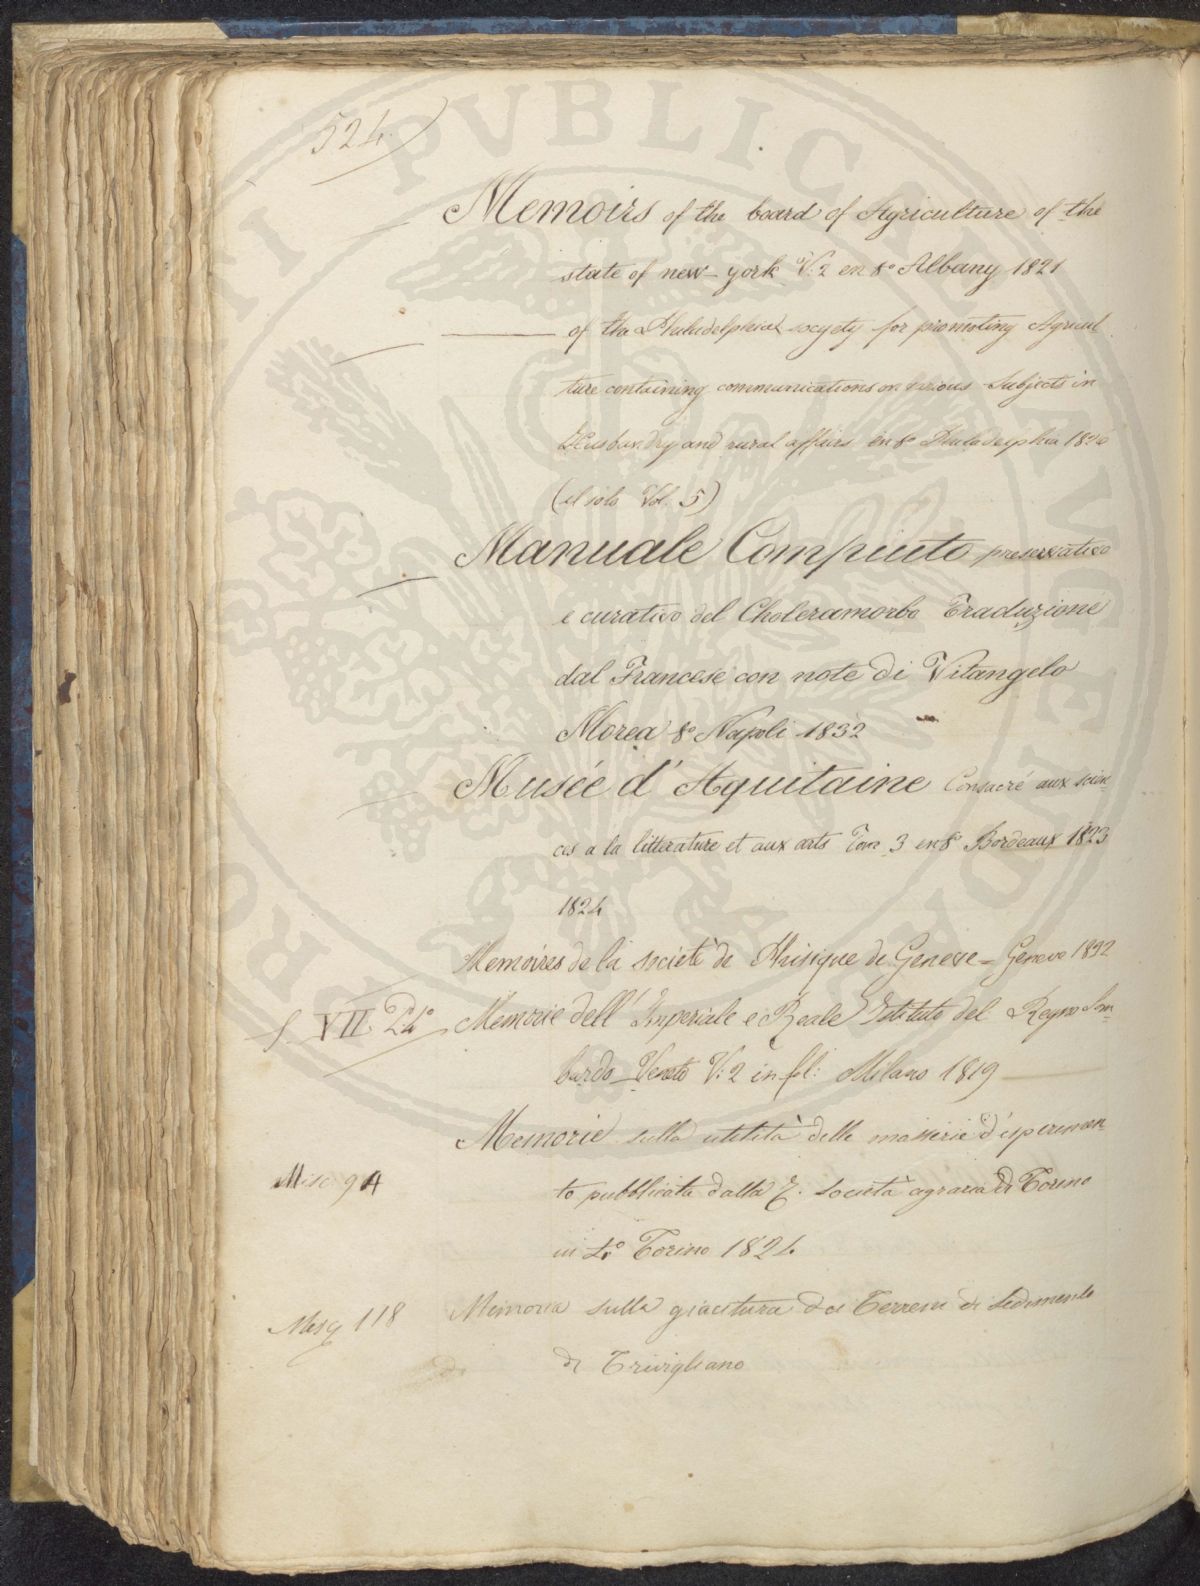 524
Memoirs of the board of Agriculture of the
state of new-york V. 2 en 8º Albany 1821
of the Philidelphial socyety for promoting Agricul
ture containing communications on various Subjects in
Husbandry and rural affairs en 8º Philadelphia 1826
(il solo Vol. 5)
Manuale Compiuto preservativo
e curativo del Choleramorbo Traduzione
dal Francese con note di Vitangelo
Morea 8º Napoli 1832
Musée d'Aquitaine Consacré aux scien-
ces a la litterature et aux arts Tom 3 en 8º Bordeaux 1823
1824
Memoires de la societè de Phisique de Geneve = Geneve 1832
S. VII. Memorie dell'Imperiale e Reale Istituto del Regno Lom-
bardo-Veneto V: 2 in fol: Milano 1819
Memorie sulla utilità delle masserie d'esperimen-
Misc. 94 to pubblicata dalla R. società agraria di Torino
in 4º Torino 1824
Misc 118 Memoria sulla giacitura dei Terreni di Sedimento
di Trivigliano
PVBLICAE